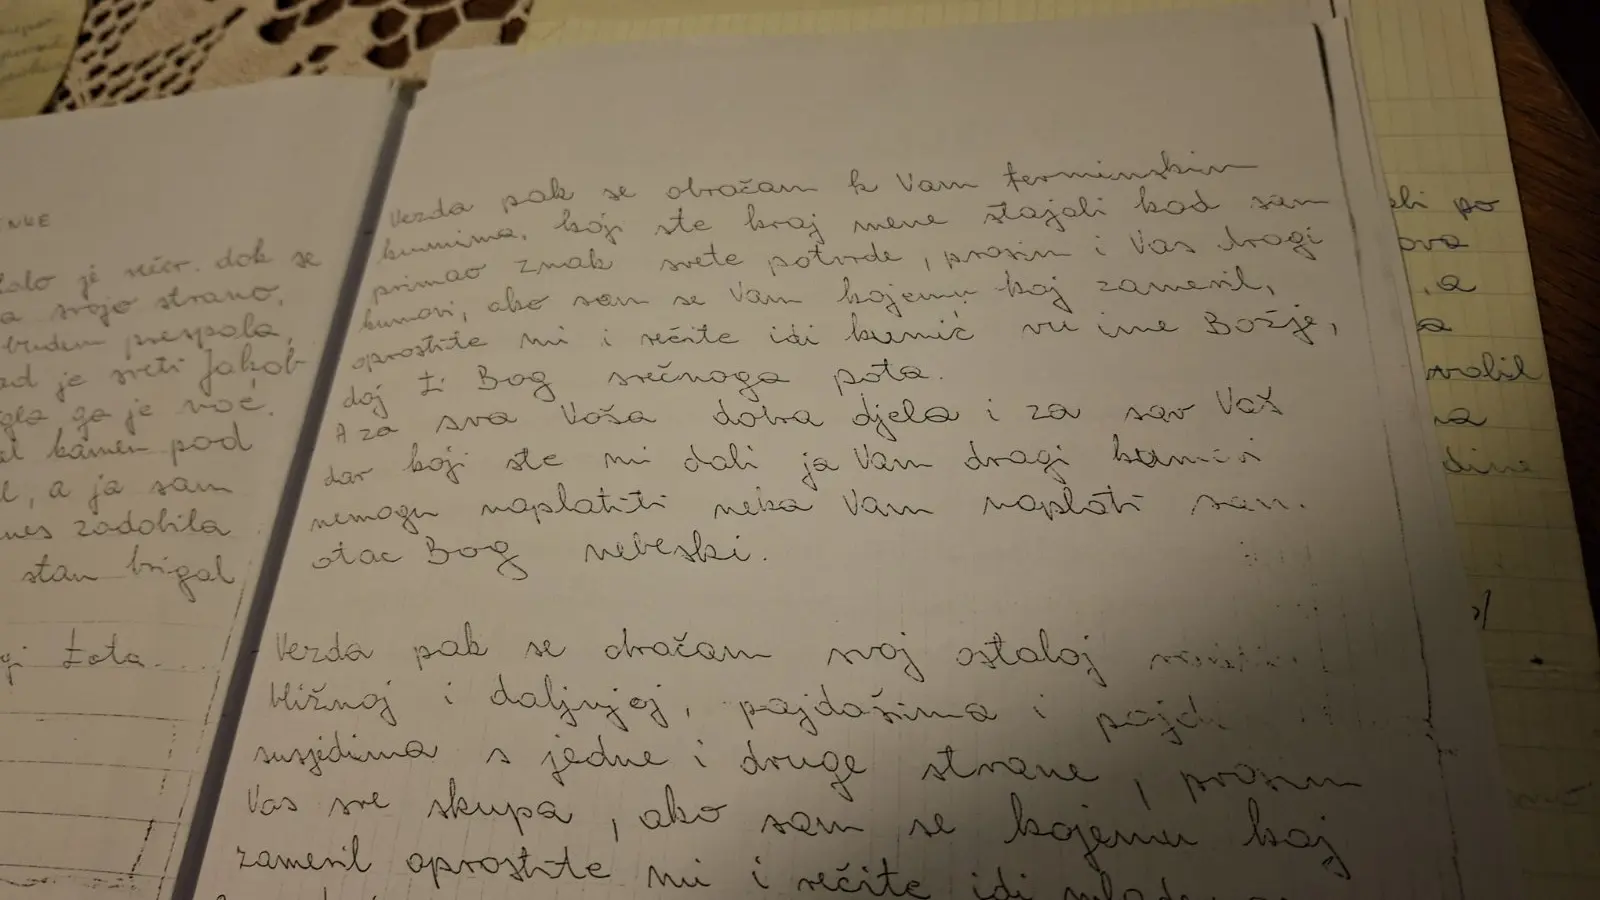 NKE
je večr. dok se
svojo strano,
budem prespala,
je sveti Jakob
ga je noć.
kamen pod
a ja sam
zadobila
stan brigal
žota.
Vezda pak se obračam k Vam ferminskim
kumima, koji ste kraj mene stajali kad sam
primao znak svete potvrde, prosim i Vas dragi
kumovi, ako sam se Vam kojemu kaj zameril,
oprostite mi i rečite idi kumić vu ime Božje,
daj ti Bog srečnoga pota.
A za sva Vaša dobra djela i za sav Vaš
dar koji ste mi dali ja Vam dragi kumovi
nemogu naplatiti neka Vam naplati sam.
otac Bog nebeski.
Vezda pak se obračam svoj ostaloj
bližnoj i daljnjoj, pajdašima i
susjedima s jedne i druge strane, prosim
Vas sve skupa, ako sam se kojemu kaj
zameril oprostite mi i rečite idi
po
ova
, a
a
na